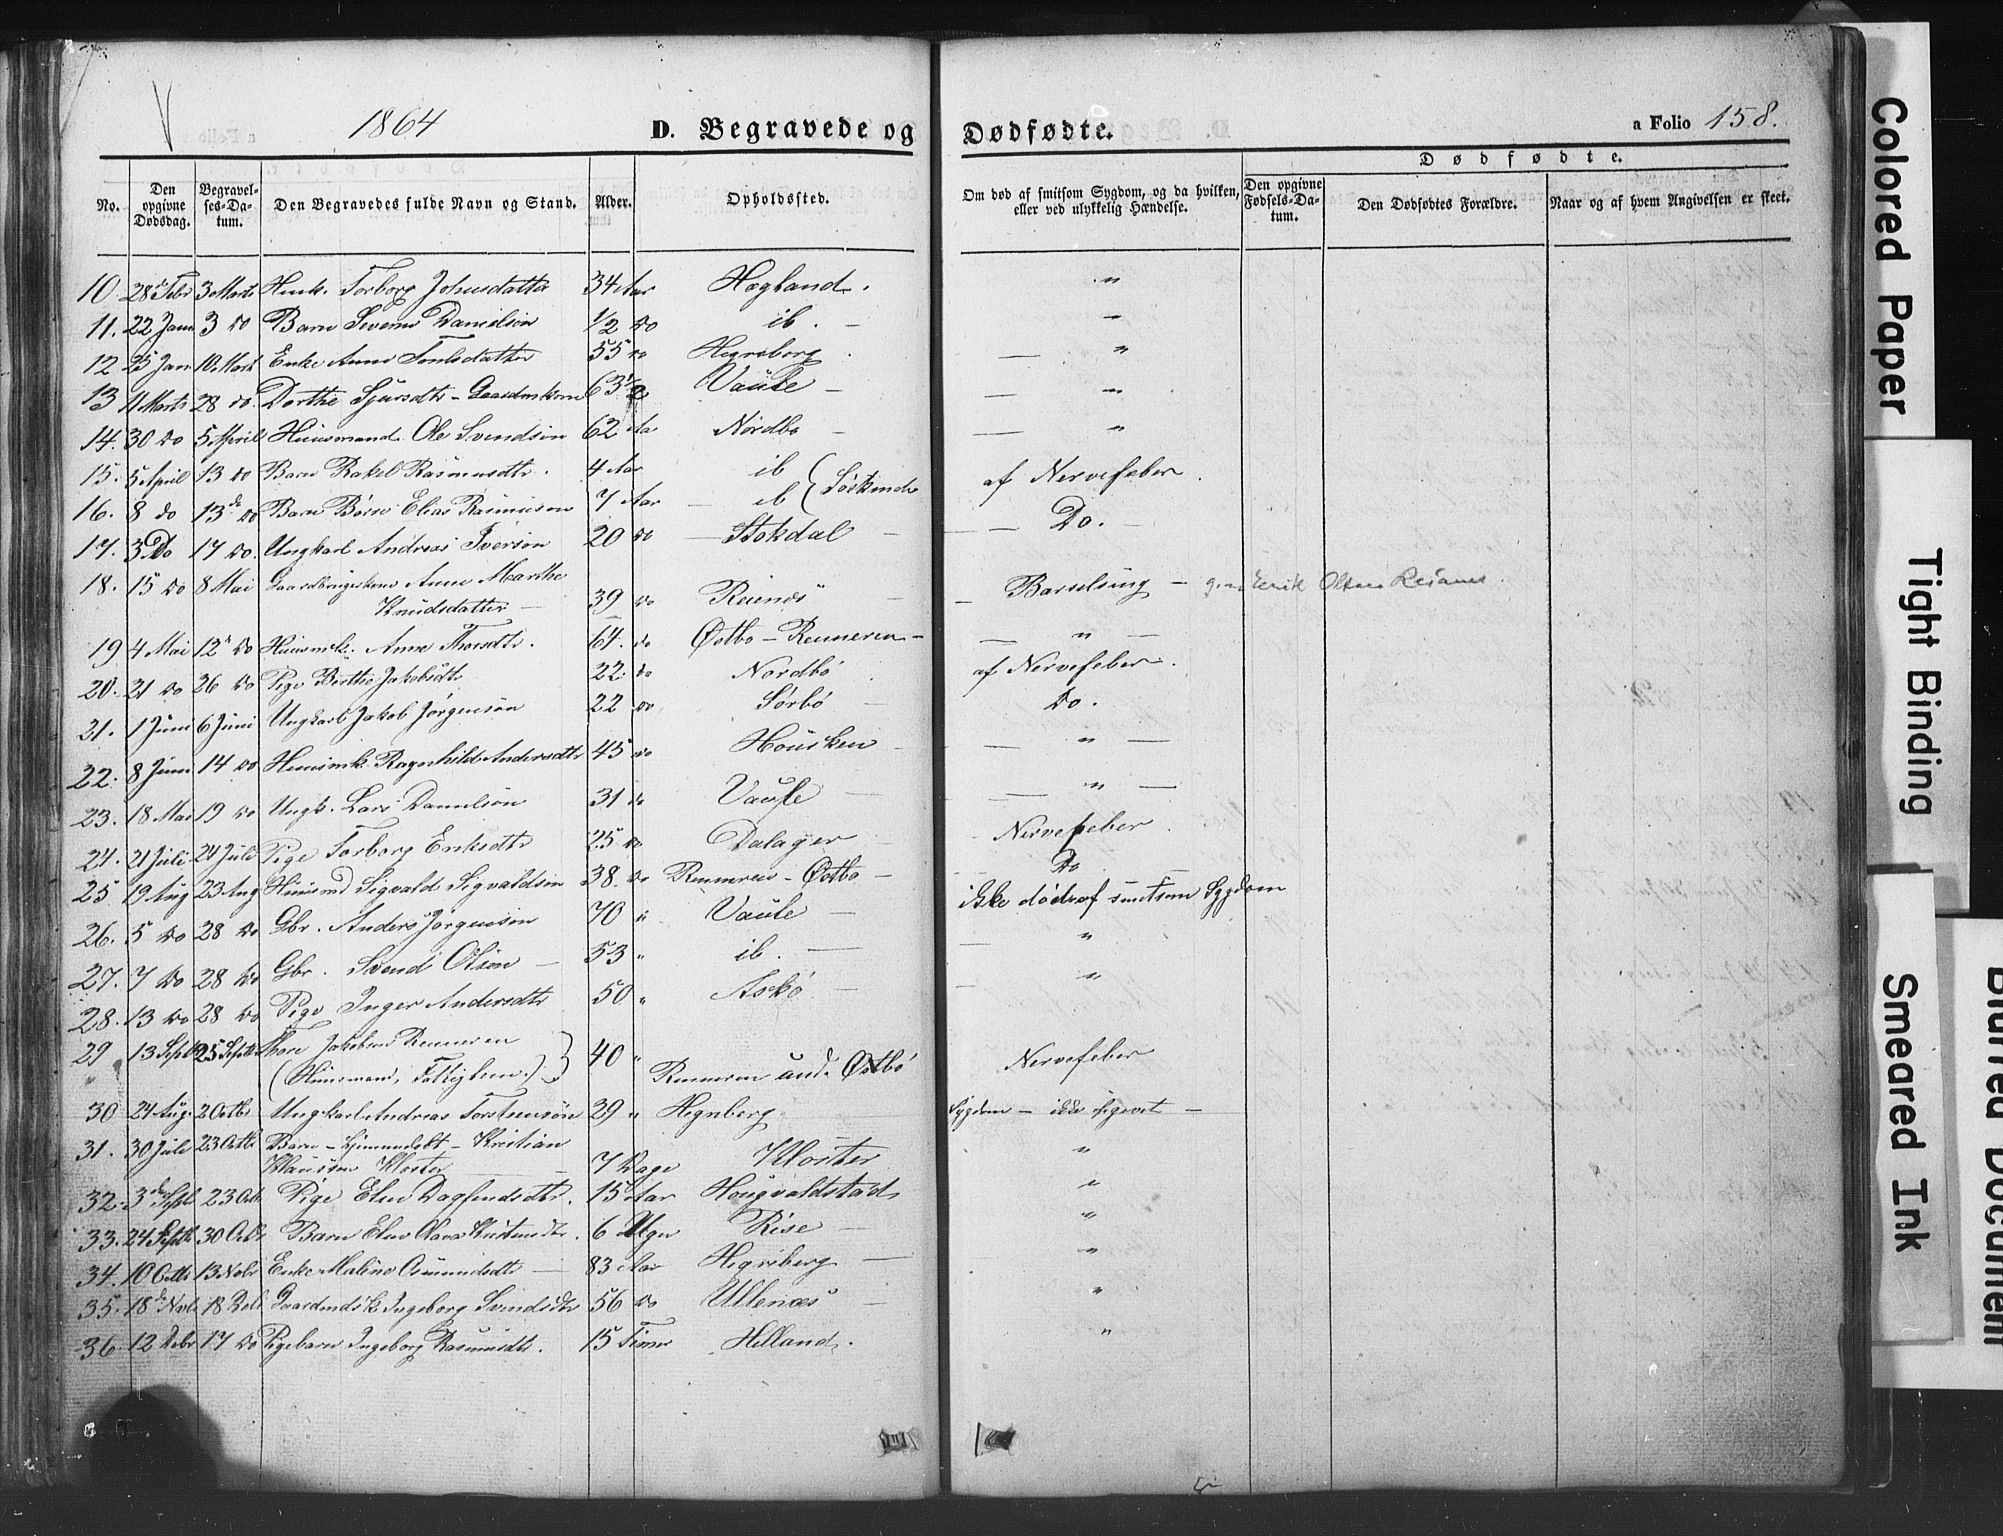 1864
D. Begravede og Dødfødte.
a Folio 158.
Dødfødte.
No. Den opgivne Dødsdag. Begravelses-Datum. Den Begravedes fulde Navn og Stand. Alder. Opholdssted. Om død af smitsom Sygdom, og da hvilken, eller ved ulykkelig Hændelse. Den opgivne Fødsels-Datum. Den Dødfødtes Forældre. Naar og af hvem Angivelsen er skeet.
10. 28 Febr 3 Marts Husk. Torborg Johnsdatter 34 Aar Hægland. "
11. 22 Janu 3 do Barn Severin Danielsen 1/2 do ib. "
12 25 Jan 10 Mart Enke Anne 55 do Hegreberg "
13 11 Marts 28 do. Dorthe Sjursdtr - Gaardmkone 63 1/2 Vaule "
14. 30 do 5 April Huusmand Ole Svendsen 62 Aa Nordbø "
15. 5 April 13 do Barn Rakel Rasmusdtr. 4 Aar ib (Søskende af Nervefeber.
16. 8 do 13de do Barn Elias Rasmusen 7 Aar ib Do.
17. 3 Do 17 do. Ungkarl Andreas Iversen 20 do Stokdal
18. 15 do 8 Mai Gaardbrugerkone Anne Marthe
Knudsdatter 39 do Reienes Barselseng - Erik Olsen
19 4 Mai 12 do Huusmk. Anne Thorsdtr. 64. do Østbø - Renneren "
20. 21 do 26 do Pige Berthe Jakobsdtr 22. do Nordbø af Nervefeber.
21. 1 Juni 6 Juni Ungkarl Jakob Jørgensen 22 do Sørbø Do.
22. 8 Juni 14 do Huusmk. Ragnhild Andersdtr 45 do Housken "
23. 18 Mai 19 do Ungk. Lars Danielsen 31 do Vaule "
24. 21 Juli 24 Juli Pige Torborg Eriksdtr 25 do Dalager Nervefeber.
25 19 Aug 23 Aug Huusmd Sigvald Sigvaldsen 38. do Renneren - Østbø Do
26. 5 do 28 do Gbr. Anders Jørgensen 70 " Vaule ikke død af smitsom Sygdom
27. 7 do 28 do Gbr. Svend Olsen 53 " ib. "
28. 13 do 28 do Pige Inger Andersdtr 50 " Askø "
29 13 Sept 25 Septb Thore Jakobsen Renneren
(Huusmand, ) 40 " Renneren und. Østbø Nervefeber
30 24 Aug. 2 Octb Ungkarl Andreas Torstensen 29 " Hegnberg Sygdom - ikke
31. 30 Juli 23 Octb Barn - - Kristian
Klaussen Kloster 7 Dage Kloster "
32. 3de Sept 23 Oct Pige Elen Dagfinsdtr. 15 Aar Hougvaldstad "
33. 24 Septb 30 Octb Barn Elen 6 Uger Rise "
34. 10 Octb 13 Nobr Enke Maline Osmundsdtr 83 Aar Hegreberg "
35. 18de Novb 18 Gaardmdsk. Ingeborg Svendsdtr 56 do Ullenæs "
36. 12 Debr 17 do Pigebarn Ingeborg Rasmusdtr. 15 Timer Helland. "
Colored Paper
Tight Binding
Smeared Ink
Blurred Document